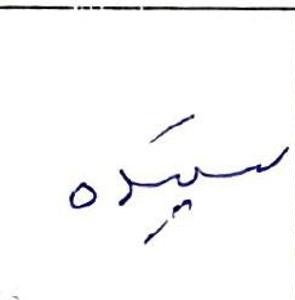 سَیِده